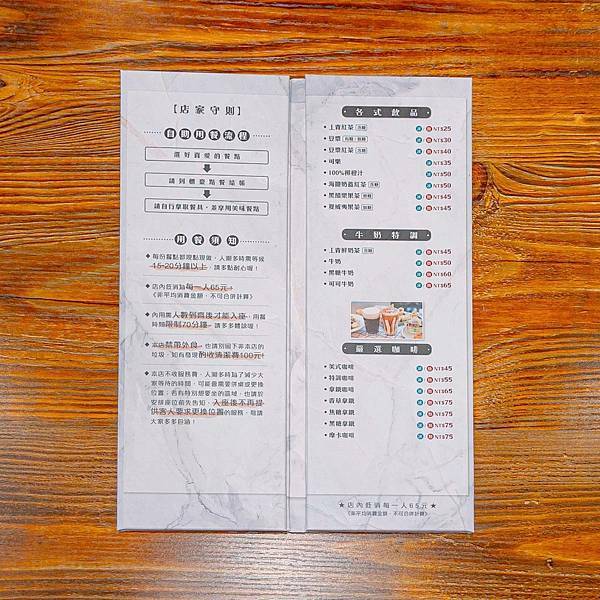 【店家守則】
自助用餐流程
選好喜愛的餐點
請到櫃臺點餐結帳
請自行拿取餐具，並享用美味餐點
用餐須知
◆每份餐點都現點現做，人潮多時需等候
15-20分鐘以上，請多點耐心喔！
◆店內低消為每一人65元。
《非平均消費金額，不可合併計算》
◆內用需人數到齊後才能入座，用餐
時間限制70分鐘，請多多體諒喔！
◆本店禁帶外食，也請別留下非本店的
垃圾，如有發現酌收清潔費100元！
◆本店不收服務費，人潮多時為了減少大
家等待的時間，可能需要併桌或更換
位置，若有特別想要坐的區域，也請於
安排座位前先告知，入座後不再提
供客人要求更換位置的服務，敬請
大家多多包涵！
各式飲品
• 上青紅茶 冰 熱 NT$25
• 豆漿 冰 熱 NT$30
• 豆漿紅茶 冰 熱 NT$40
• 可樂 冰 NT$35
• 100%柳橙汁 冰 NT$50
• 海鹽奶蓋紅茶 冰 NT$50
• 黑醋栗果茶 冰 熱 NT$45
• 夏威夷果茶 冰 熱 NT$45
牛奶特調
• 上青鮮奶茶 冰 熱 NT$45
• 牛奶 冰 熱 NT$50
• 黑糖牛奶 冰 熱 NT$60
• 可可牛奶 冰 熱 NT$65
嚴選咖啡
• 美式咖啡 冰 熱 NT$45
• 特調咖啡 冰 熱 NT$55
• 拿鐵咖啡 冰 熱 NT$65
• 香草拿鐵 冰 熱 NT$75
• 焦糖拿鐵 冰 熱 NT$75
• 黑糖拿鐵 冰 熱 NT$75
• 摩卡咖啡 冰 熱 NT$75
★店內低消每一人65元★
《非平均消費金額，不可合併計算》